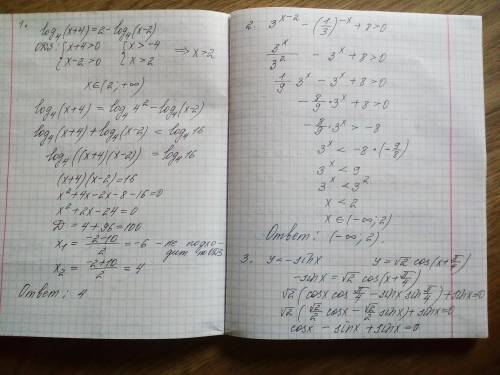 1.
log₄(x+4)=2-log₄(x-2)
ОДЗ: {x+4>0 {x>-4
{x-2>0 {x>2 ⇒ x>2
x∈(2; +∞)
log₄(x+4)=log₄4²-log₄(x-2)
log₄(x+4)+log₄(x-2)=log₄16
log₄((x+4)(x-2))=log₄16
(x+4)(x-2)=16
x²+4x-2x-8-16=0
x²+2x-24=0
D=4+96=100
x₁=(-2-10)/2=-6 - не подхо-
дит по ОДЗ
x₂=(-2+10)/2=4
Ответ: 4
2. 3^(x-2)-(1/3)^(-x)+8>0
3^x/3²-3^x+8>0
1/9·3^x-3^x+8>0
-8/9·3^x+8>0
-8/9·3^x>-8
3^x<-8·(-9/8)
3^x<9
3^x<3²
x<2
x∈(-∞;2)
Ответ: (-∞,2).
3. y=-sinx y=√2cos(x+π/4)
-sinx=√2cos(x+π/4)
√2(cosxcosπ/4-sinxsinπ/4)+sinx=0
√2(√2/2cosx-√2/2sinx)+sinx=0
cosx-sinx+sinx=0